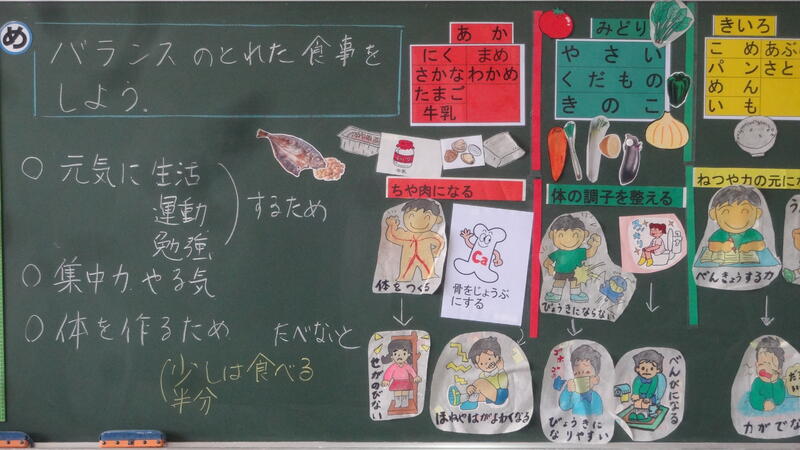 め
バランスのとれた食事を
しよう.
○ 元気に生活
運動
勉強
するため
○ 集中力.やる気
○ 体を作るため
たべないと
(少しは食べる
半分
あか
にく まめ
さかな わかめ
たまご
牛乳
ちや肉になる
体をつくる
Ca
骨をじょうぶ
にする
せがのびない
ほねやはがよわくなる
みどり
やさい
くだもの
きのこ
体の調子を整える
びょうきにならない
ゴホ
びょうきに
なりやすい
べんぴになる
きいろ
こめ あぶ
パン さと
めん
いも
ねつや力の元にな
べんきょうする力
力がでな